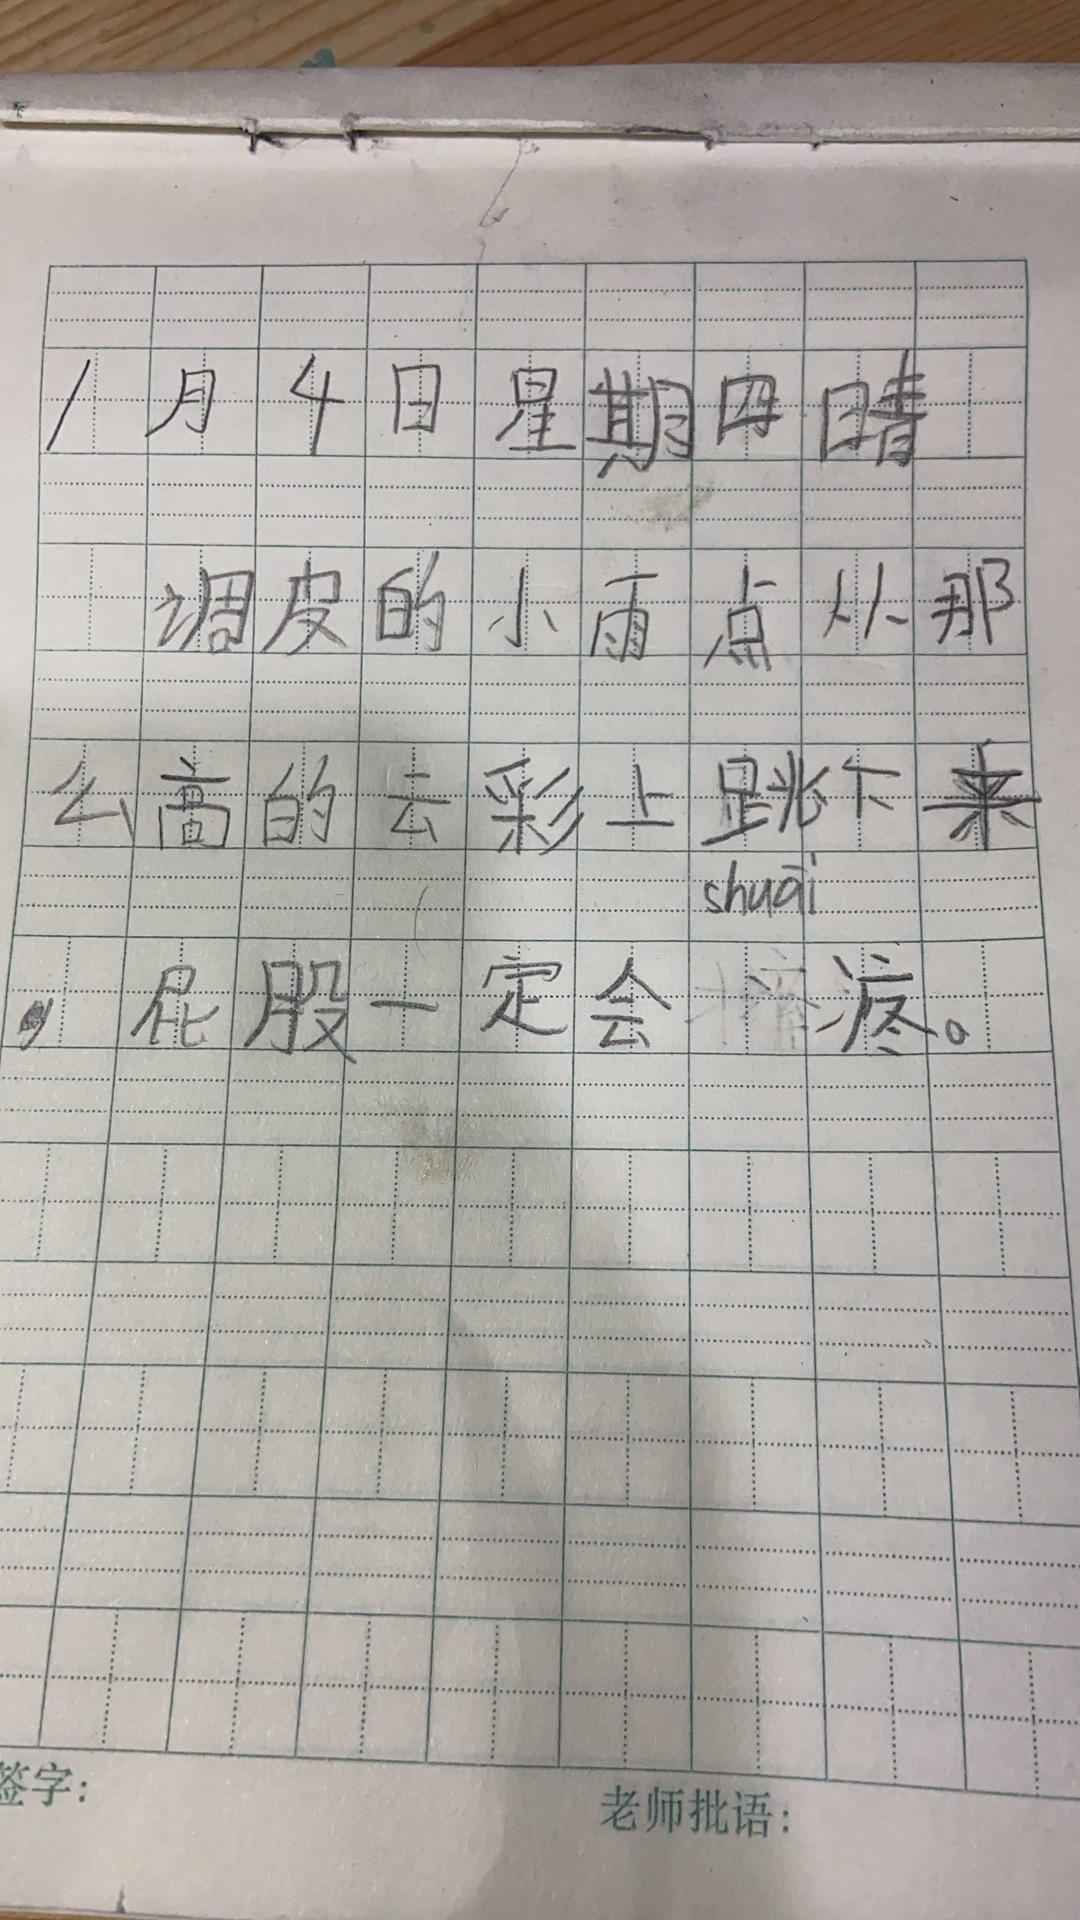 1月4日星期四晴
调皮的小雨点从那
么高的去彩上跳下来
shuāi
，屁股一定会 疼。
签字：
老师批语：